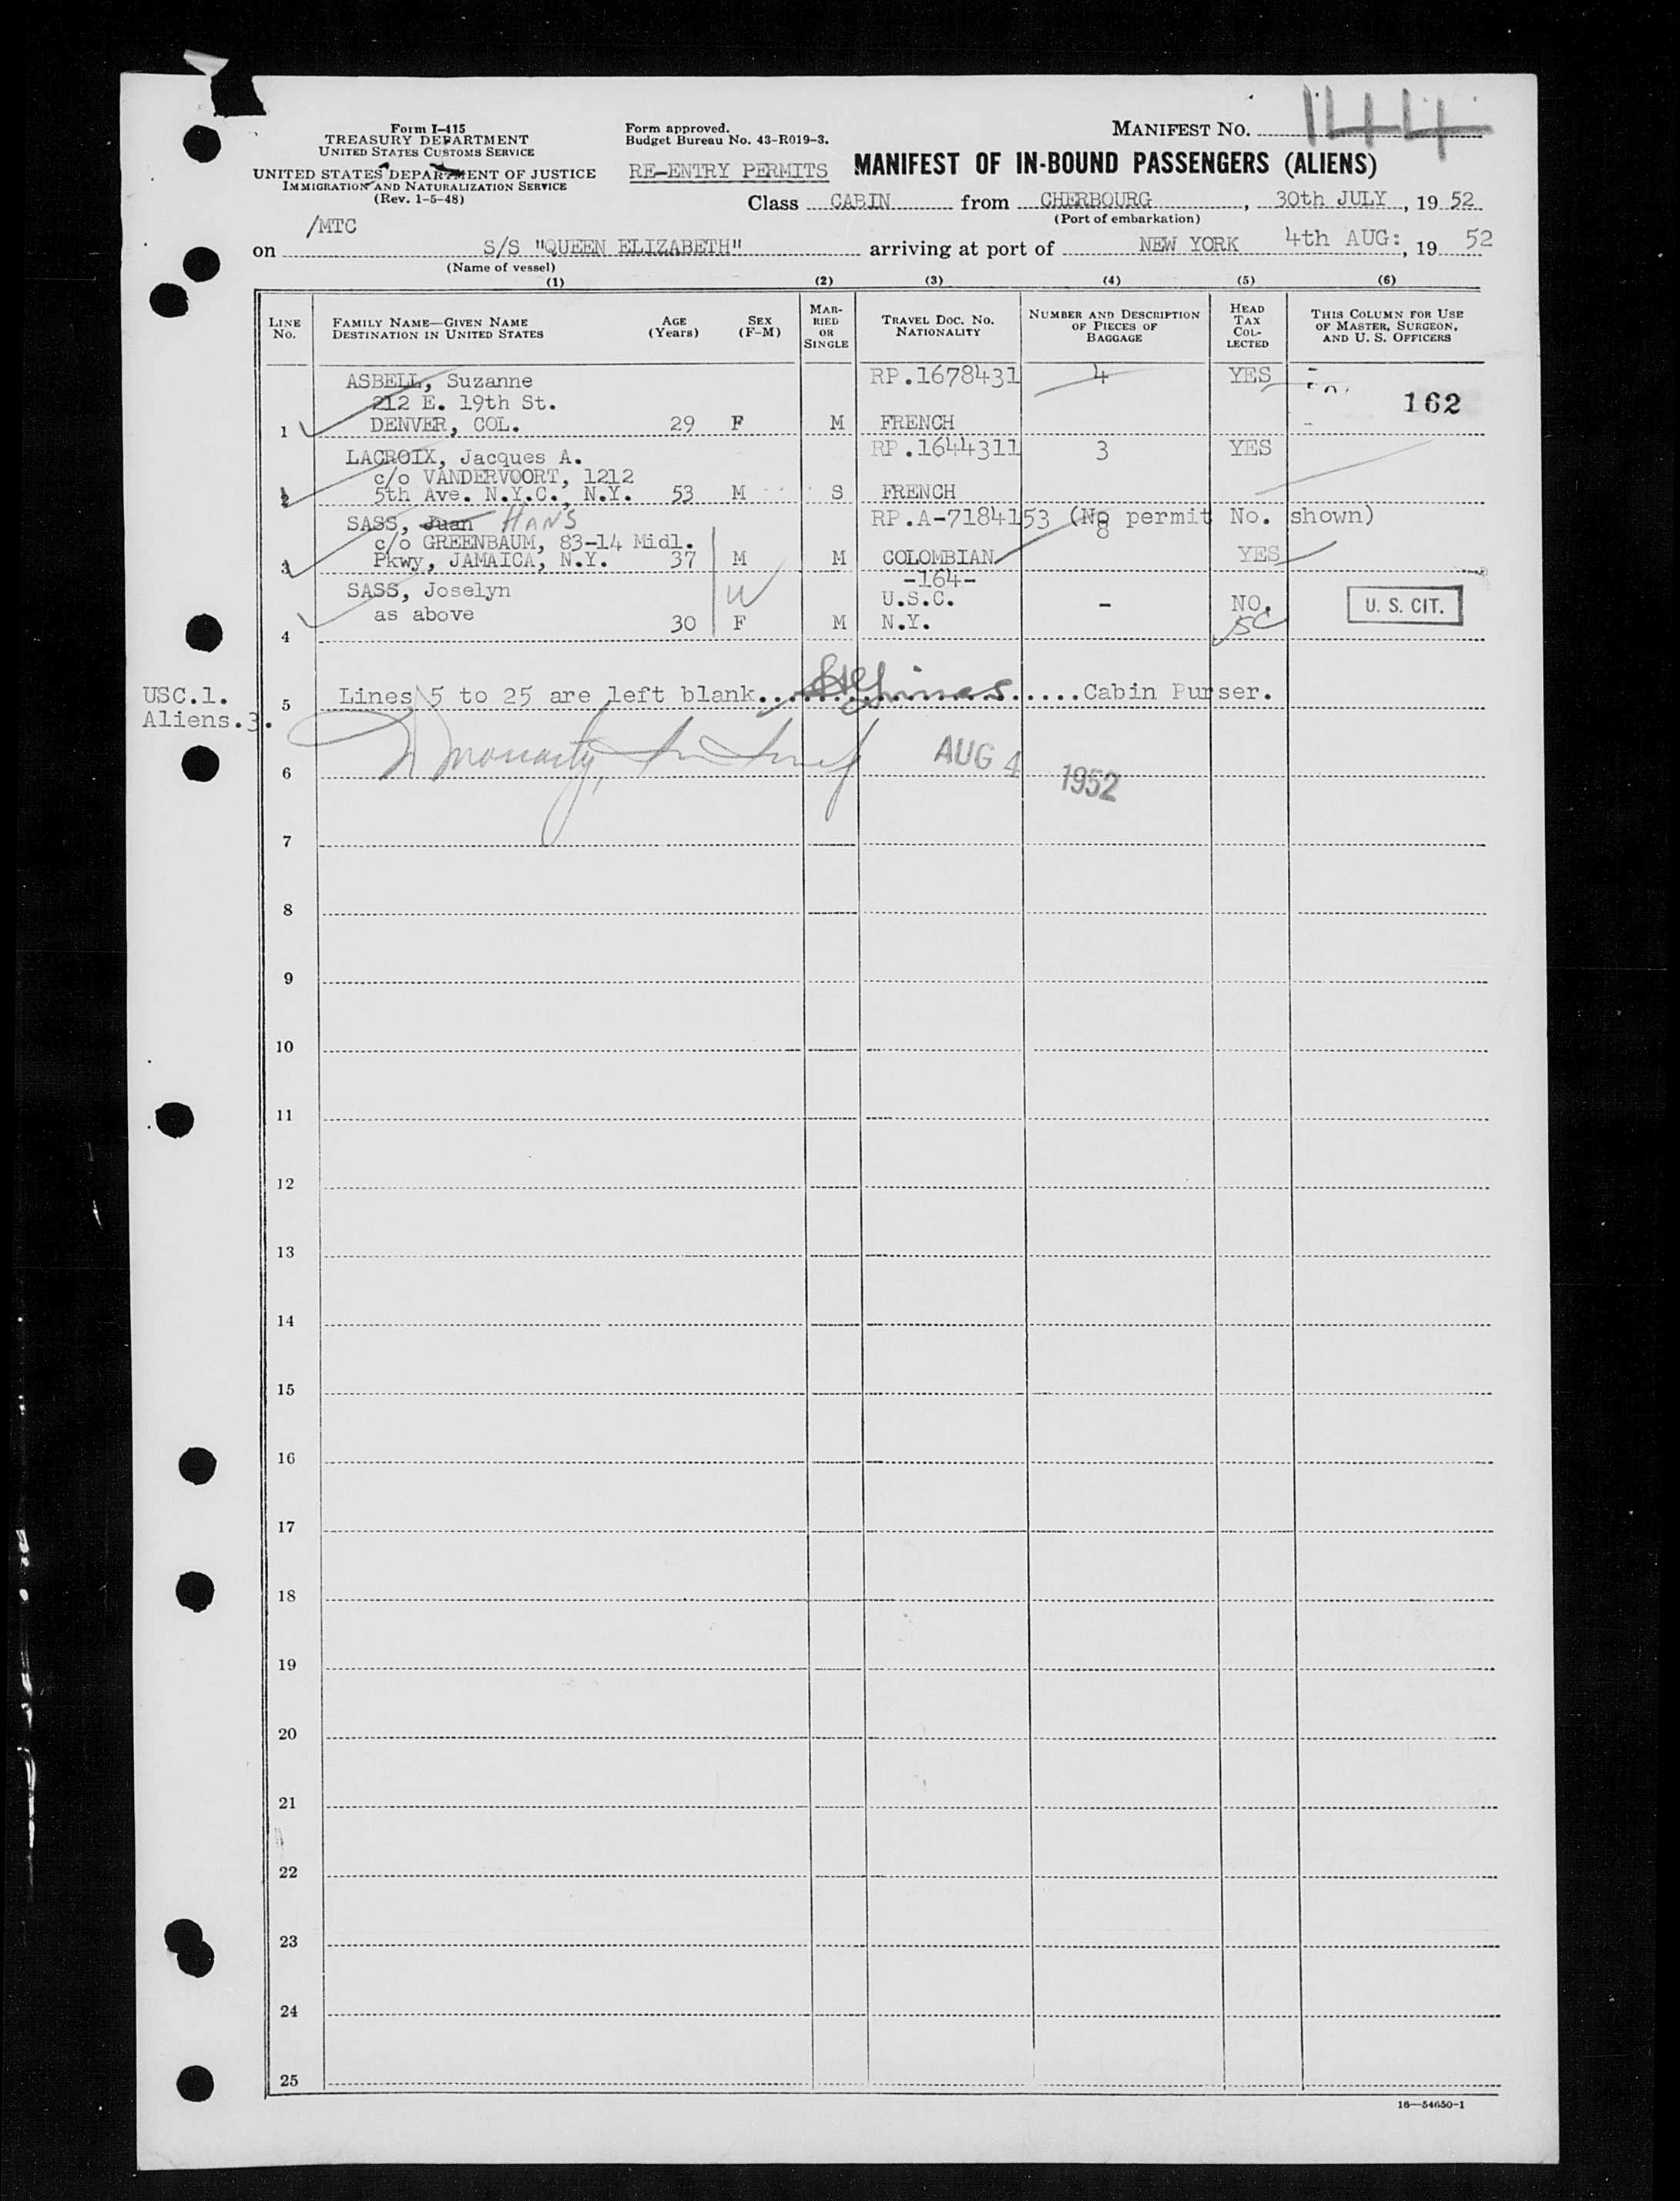 Form I-415
TREASURY DEPARTMENT
UNITED STATES CUSTOMS SERVICE
UNITED STATES DEPARTMENT OF JUSTICE
IMMIGRATION AND NATURALIZATION SERVICE
(Rev. 1-5-48)
Form approved.
Budget Bureau No. 43-R019-3.
RE-ENTRY PERMITS
MANIFEST NO. 144
MANIFEST OF IN-BOUND PASSENGERS (ALIENS)
Class CABIN from CHERBOURG, 30th JULY, 1952
(Port of embarkation)
/MTC
on S/S "QUEEN ELIZABETH" arriving at port of NEW YORK 4th AUG:, 1952
(Name of vessel)
(1) (2) (3) (4) (5) (6)
LINE NO.
FAMILY NAME—GIVEN NAME
DESTINATION IN UNITED STATES
AGE (Years)
SEX (F-M)
MARRIED OR SINGLE
TRAVEL DOC. NO.
NATIONALITY
NUMBER AND DESCRIPTION OF PIECES OF BAGGAGE
HEAD TAX COLLECTED
THIS COLUMN FOR USE OF MASTER, SURGEON, AND U. S. OFFICERS
ASBELL, Suzanne RP.1678431 4 YES
212 E. 19th St. 162
1 DENVER, COL. 29 F M FRENCH
LACROIX, Jacques A. RP.1644311 3 YES
c/o VANDERVOORT, 1212
2 5th Ave. N.Y.C., N.Y. 53 M S FRENCH
SASS, Juan HANS RP.A-7184153 (No permit No. shown)
c/o GREENBAUM, 83-14 Midl. 8
3 Pkwy, JAMAICA, N.Y. 37 M M COLOMBIAN YES
-164-
SASS, Joselyn U.S.C. - NO. U. S. CIT.
as above
4 30 F M N.Y.
USC.1.
Aliens.3.
5 Lines 5 to 25 are left blank..................Cabin Purser.
6 AUG 4 1952
7
8
9
10
11
12
13
14
15
16
17
18
19
20
21
22
23
24
25
16—54650-1